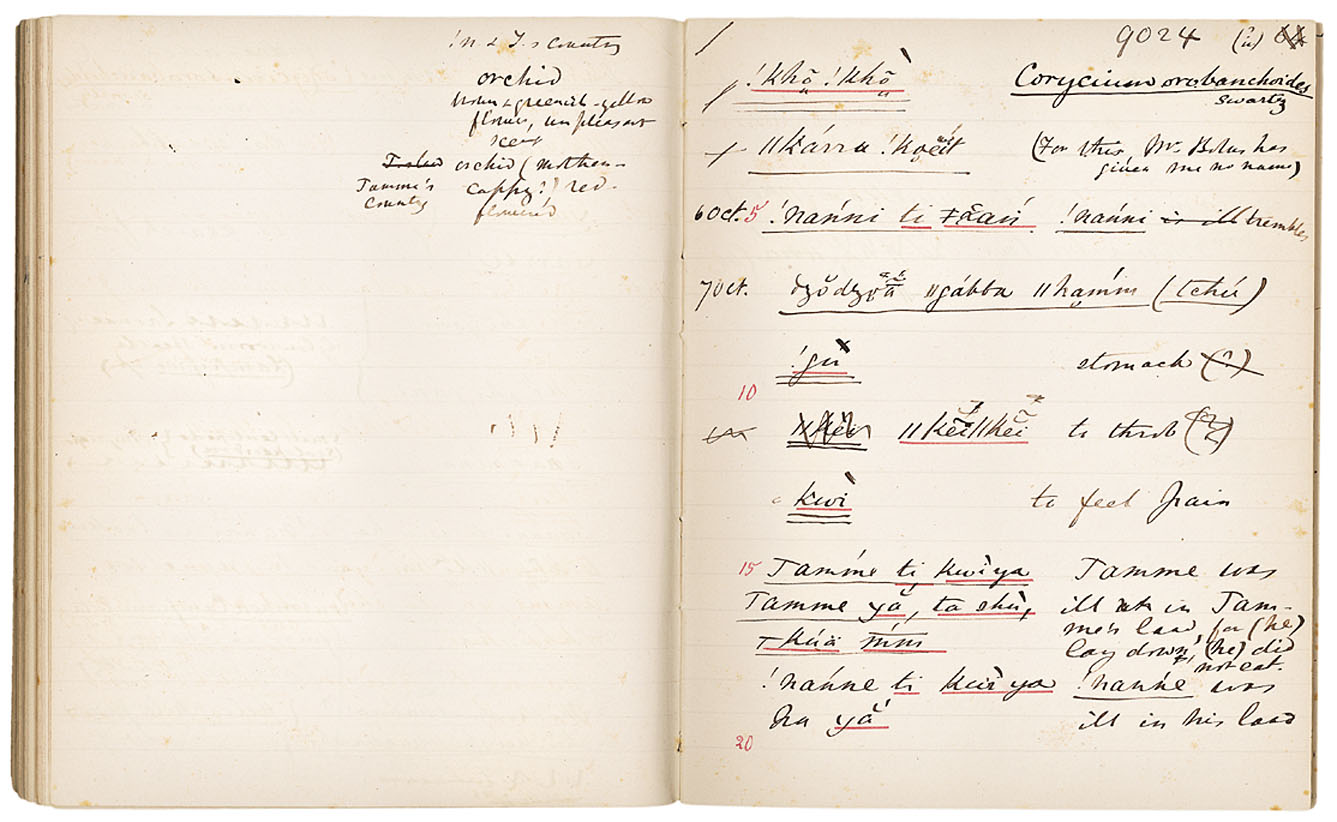 !n & T.'s country
orchid
brown & greenish-yellow
flower, unpleasant
scent
orchid (mother-
Tamme's cappy?) red-
country flowered
9024
!khō̤ !khò̤ Corycium orobanchoides
Swartz
ǁkárra (For this Mr. Bolus has
given me no name)
6 Oct. 5 !nańni ti !nańni is ill trembles
7 Oct. ǁgábba ǁham̀m (tchú)
!gu stomach (?)
10
ǁkèi ǁkèi to throb (?)
kwì to feel pain
15 Tamme ti kwìya Tamme was
Tamme yă, ta shù, ill in Tam-
me's land, for (he)
kúä m̄m lay down, (he) did
not eat.
!nańne ti kwì ya !nańne was
ha yă ill in his land
20